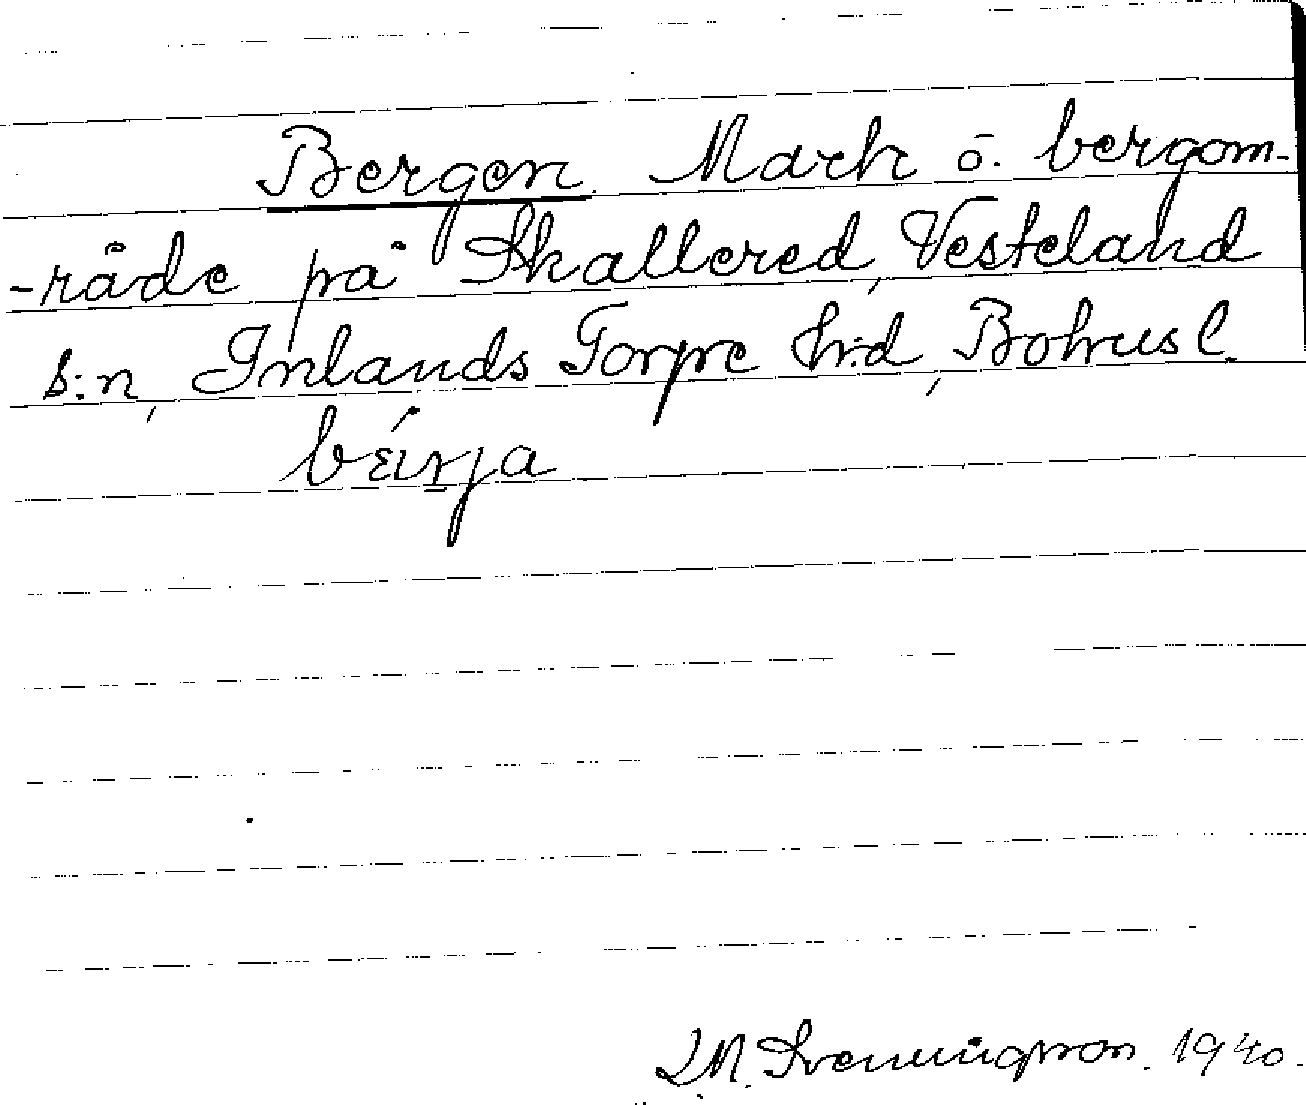 Bergen. Mark o. bergom-
-råde på Skallered, Vesteland
s:n, Inlands Torpe hrd, Bohusl.
béırja
J.M. Svenningson. 1940.